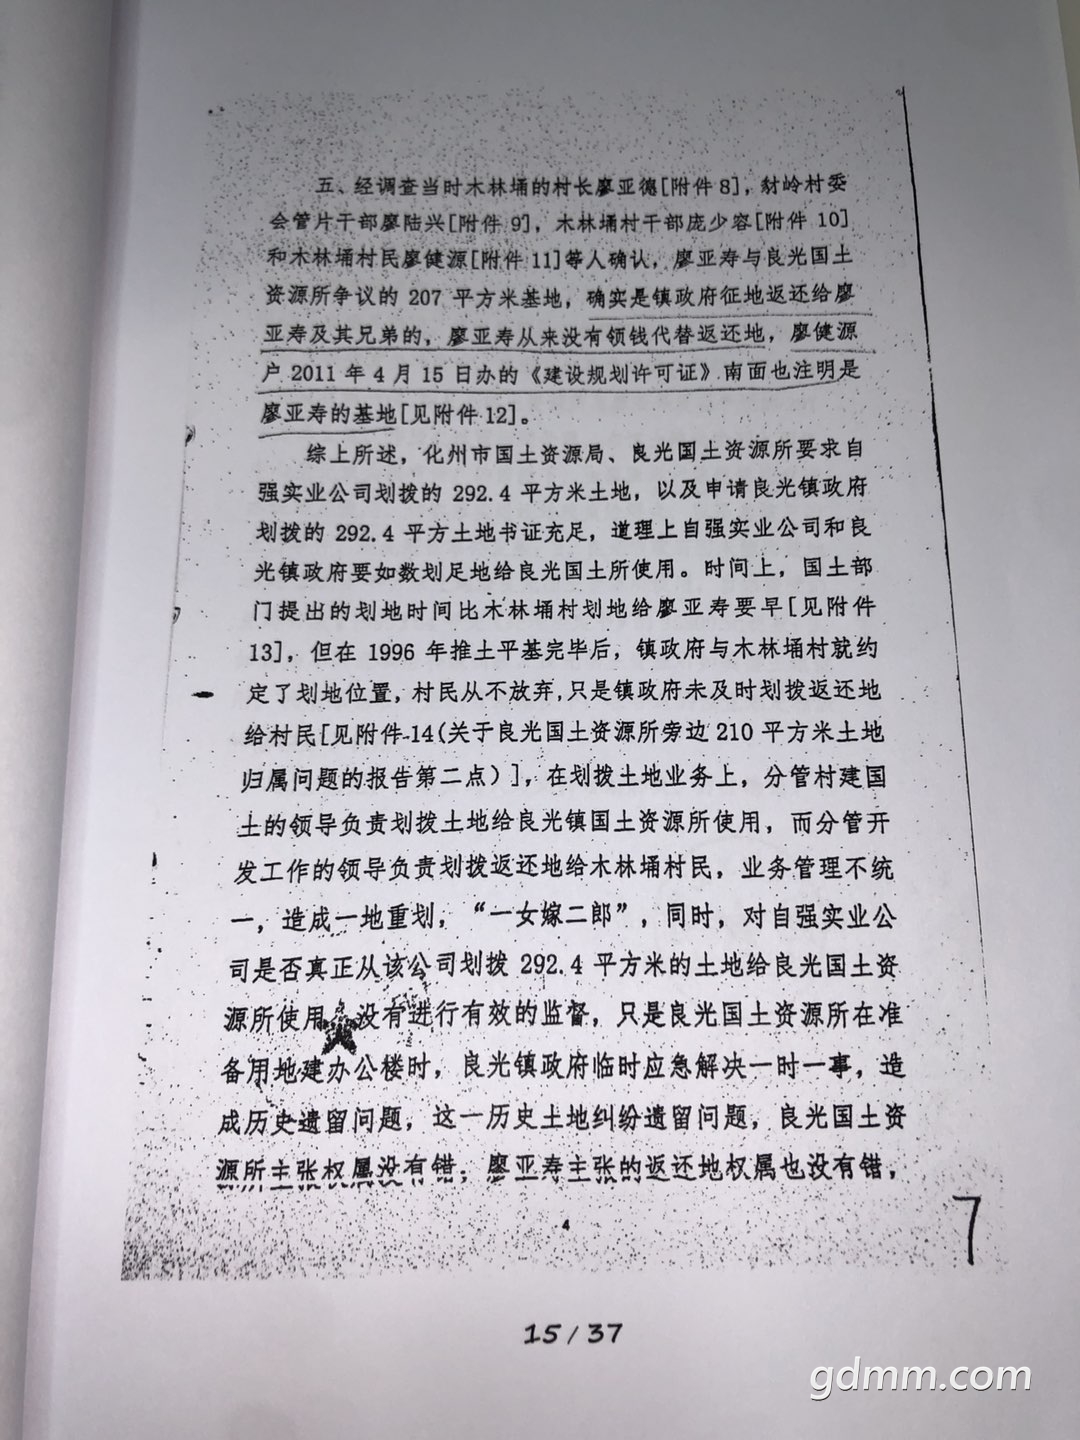 五、经调查当时木林埇的村长廖亚德[附件8]，豺岭村委
会管片干部廖陆兴[附件9]，木林埇村干部庞少容[附件10]
和木林埇村民廖健源[附件11]等人确认，廖亚寿与良光国土
资源所争议的 207 平方米基地，确实是镇政府征地返还给廖
亚寿及其兄弟的，廖亚寿从来没有领钱代替返还地，廖健源
户 2011 年 4 月 15 日办的《建设规划许可证》南面也注明是
廖亚寿的基地[见附件12]。
综上所述，化州市国土资源局、良光国土资源所要求自
强实业公司划拨的 292.4 平方米土地，以及申请良光镇政府
划拨的 292.4 平方土地书证充足，道理上自强实业公司和良
光镇政府要如数划足地给良光国土所使用。时间上，国土部
门提出的划地时间比木林埇村划地给廖亚寿要早[见附件
13]，但在 1996 年推土平基完毕后，镇政府与木林埇村就约
定了划地位置，村民从不放弃,只是镇政府未及时划拨返还地
给村民[见附件-14(关于良光国土资源所旁边 210 平方米土地
归属问题的报告第二点）]，在划拨土地业务上，分管村建国
土的领导负责划拨土地给良光镇国土资源所使用，而分管开
发工作的领导负责划拨返还地给木林埇村民，业务管理不统
一，造成一地重划，“一女嫁二郎”，同时，对自强实业公
司是否真正从该公司划拨 292.4 平方米的土地给良光国土资
源所使用，没有进行有效的监督，只是良光国土资源所在准
备用地建办公楼时，良光镇政府临时应急解决一时一事，造
成历史遗留问题，这一历史土地纠纷遗留问题，良光国土资
源所主张权属没有错；廖亚寿主张的返还地权属也没有错，
4
7
15/37
gdmm.com